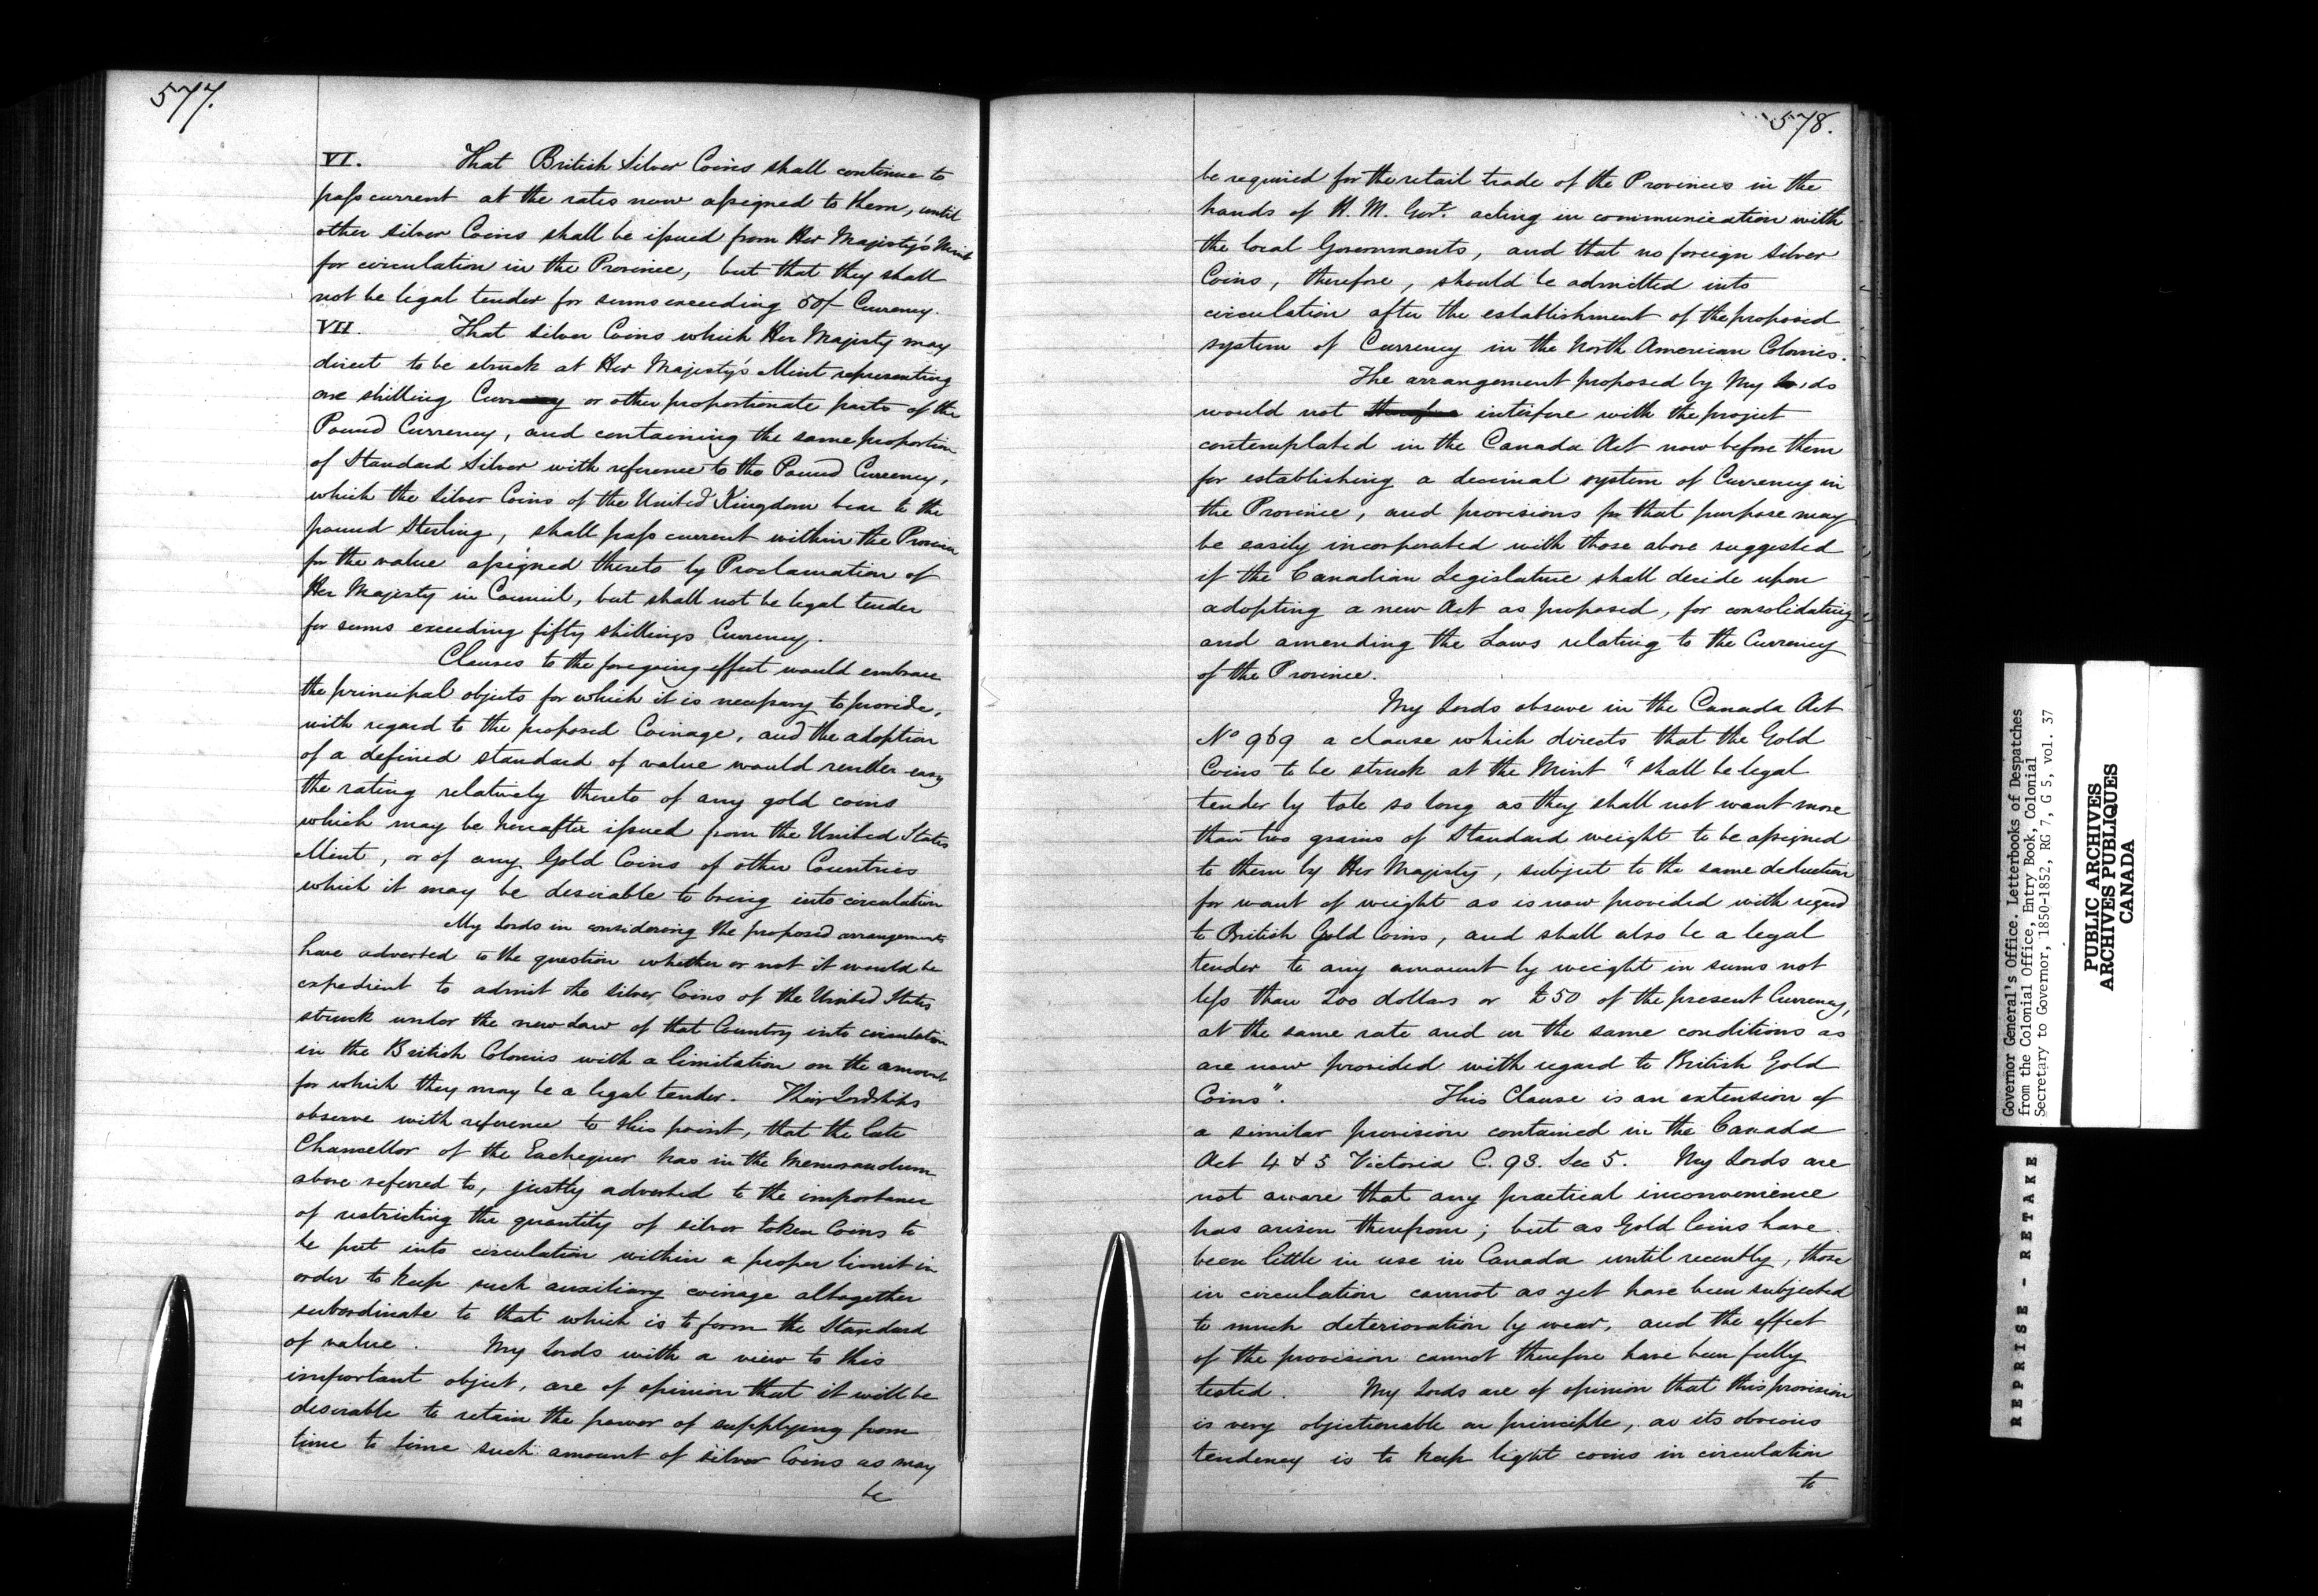 577.
VI. That British Silver Coins shall continue to
pass current at the rates now assigned to them, until
other silver Coins shall be issued from Her Majesty's Mint
for circulation in the Province, but that they shall
not be legal tender for sums exceeding 50/- Currency.
VII. That silver Coins which Her Majesty may
direct to be struck at Her Majesty's Mint representing
one shilling Currency or other proportionate parts of the
Pound Currency, and containing the same proportion
of Standard Silver with reference to the Pound Currency,
which the Silver Coins of the United Kingdom bear to the
pound Sterling, shall pass current within the Province
for the value assigned thereto by Proclamation of
Her Majesty in Council, but shall not be legal tender
for sums exceeding fifty shillings Currency.
Clauses to the foregoing effect would embrace
the principal objects for which it is necessary to provide,
with regard to the proposed Coinage, and the adoption
of a defined standard of value would render easy
the rating relatively thereto of any gold coins
which may be hereafter issued from the United States
Mint, or of any Gold Coins of other Countries
which it may be desirable to bring into circulation
My Lords in considering the proposed arrangements
have adverted to the question whether or not it would be
expedient to admit the silver Coins of the United States
struck under the new Law of that Country into circulation
in the British Colonies with a limitation on the amount
for which they may be a legal tender. Their Lordships
observe with reference to this point, that the late
Chancellor of the Exchequer has in the Memorandum
above referred to, justly adverted to the importance
of restricting the quantity of silver token Coins to
be put into circulation within a proper limit in
order to keep such auxiliary coinage altogether
subordinate to that which is to form the Standard
of value. My Lords with a view to this
important object, are of opinion that it will be
desirable to retain the power of supplying from
time to time such amount of silver Coins as may
be
578.
be required for the retail trade of the Provinces in the
hands of H. M. Govt. acting in communication with
the local Governments, and that no foreign silver
Coins, therefore, should be admitted into
circulation after the establishment of the proposed
system of Currency in the North American Colonies.
The arrangement proposed by My Lords
would not therefore interfere with the project
contemplated in the Canada Act now before them
for establishing a decimal system of Currency in
the Province, and provisions for that purpose may
be easily incorporated with those above suggested
if the Canadian Legislature shall decide upon
adopting a new Act as proposed, for consolidating
and amending the Laws relating to the Currency
of the Province.
My Lords observe in the Canada Act
No 969 a clause which directs that the Gold
Coins to be struck at the Mint "shall be legal
tender by tale so long as they shall not want more
than two grains of Standard weight to be assigned
to them by Her Majesty, subject to the same deduction
for want of weight as is now provided with regard
to British Gold Coins, and shall also be a legal
tender to any amount by weight in sums not
less than 200 dollars or £50 of the present Currency,
at the same rate and on the same conditions as
are now provided with regard to British Gold
Coins". This Clause is an extension of
a similar provision contained in the Canada
Act 4 & 5 Victoria C. 93. Sec 5. My Lords are
not aware that any practical inconvenience
has arisen therefrom; but as Gold Coins have
been little in use in Canada until recently, those
in circulation cannot as yet have been subjected
to much deterioration by wear, and the effect
of the provision cannot therefore have been fully
tested. My Lords are of opinion that this provision
is very objectionable on principle, as its obvious
tendency is to keep light coins in circulation
to
Governor General's Office. Letterbooks of Despatches
from the Colonial Office, Entry Book, Colonial
Secretary to Governor, 1850-1852, RG 7, G 5, vol. 37
PUBLIC ARCHIVES
ARCHIVES PUBLIQUES
CANADA
REPRISE - RETAKE